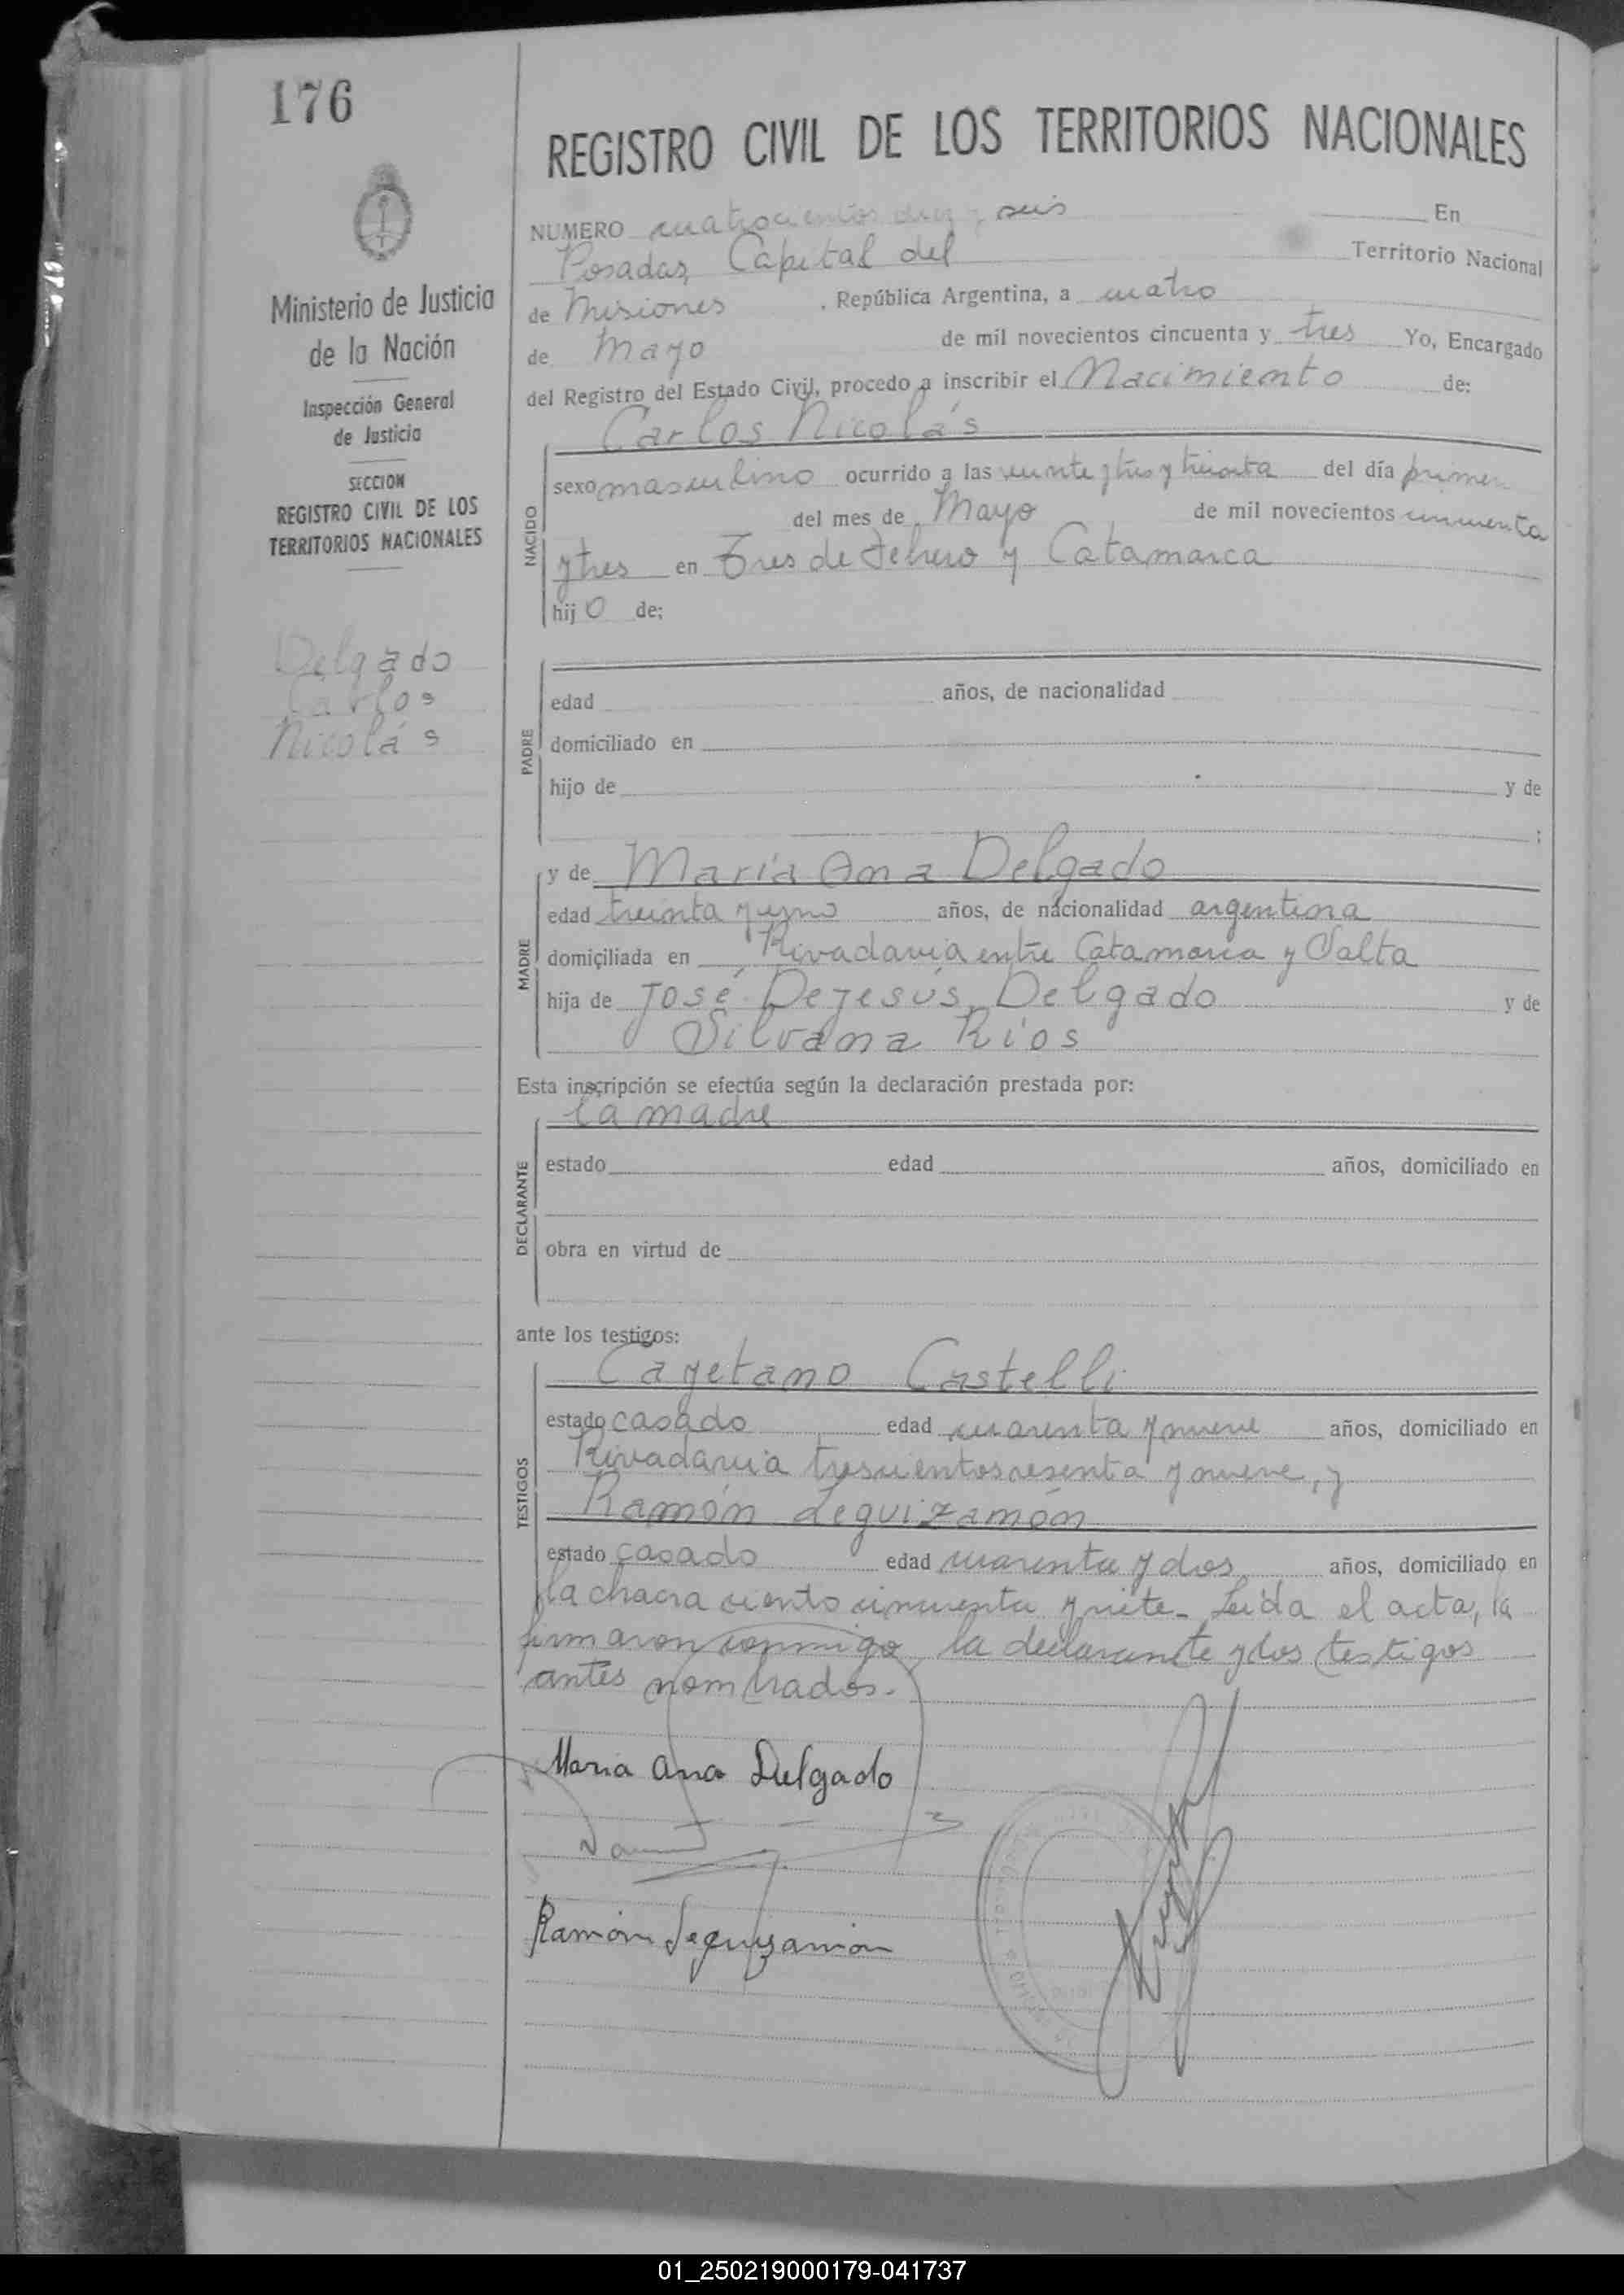 176
REGISTRO CIVIL DE LOS TERRITORIOS NACIONALES
Ministerio de Justicia
de la Nación
Inspección General
de Justicia
SECCION
REGISTRO CIVIL DE LOS
TERRITORIOS NACIONALES
Delgado
Carlos
Nicolás
NUMERO cuatrocientos diez y seis En
Posadas, Capital del Territorio Nacional
de Misiones , República Argentina, a cuatro
de Mayo de mil novecientos cincuenta y tres Yo, Encargado
del Registro del Estado Civil, procedo a inscribir el Nacimiento de:
NACIDO
Carlos Nicolás
sexo masculino ocurrido a las veinte y tres y treinta del día primero
del mes de Mayo de mil novecientos cincuenta
y tres en Tres de Febrero y Catamarca
hijo de:
PADRE
edad años, de nacionalidad
domiciliado en
hijo de y de
;
MADRE
y de María Ana Delgado
edad treinta y uno años, de nacionalidad argentina
domiciliada en Rivadavia entre Catamarca y Salta
hija de José Dejesús Delgado y de
Silvana Ríos
Esta inscripción se efectúa según la declaración prestada por:
DECLARANTE
la madre
estado edad años, domiciliado en
obra en virtud de
ante los testigos:
TESTIGOS
Cayetano Castelli
estado casado edad cuarenta y nueve años, domiciliado en
Rivadavia trescientos sesenta y nueve, y
Ramón Leguizamón
estado casado edad cuarenta y dos años, domiciliado en
la chacra ciento cincuenta y siete. Leída el acta, la
firmaron conmigo, la declarante y los testigos
antes nombrados.
Maria Ana Delgado
Ramón Leguizamón
01_250219000179-041737